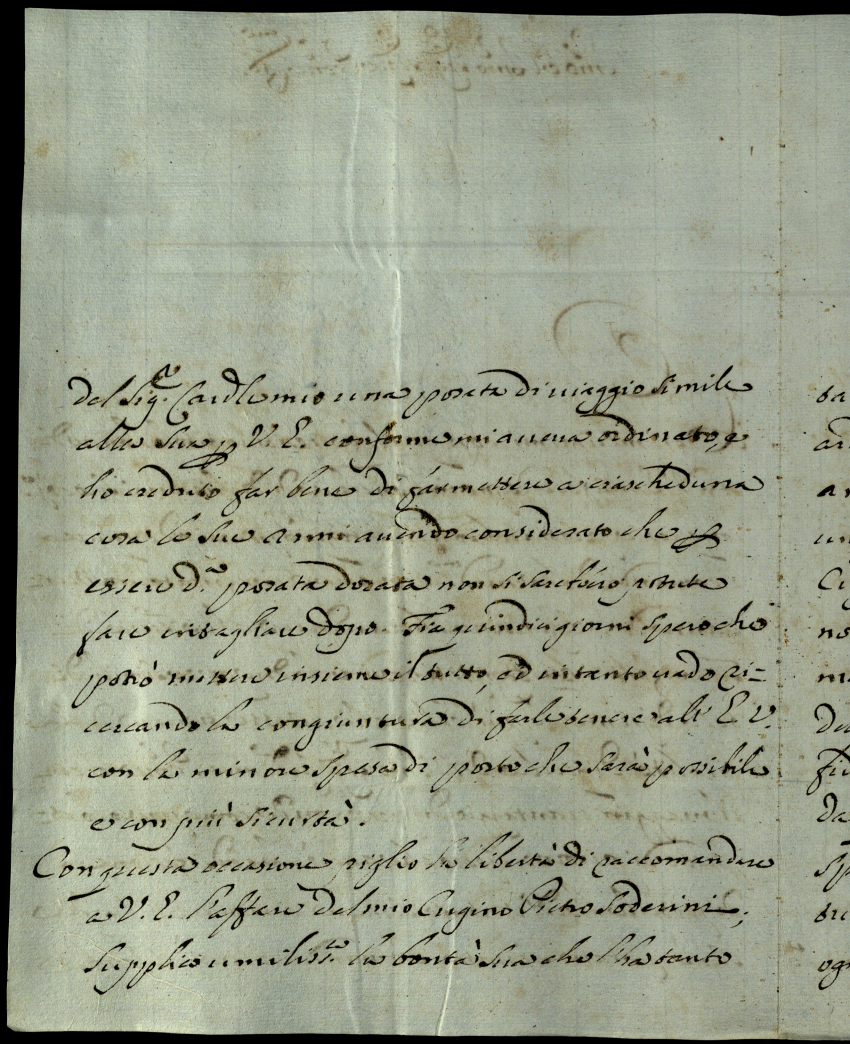 del Sig.r Cardle mio una posata di viaggio simile
alla sua p V. E. conforme mi aueua ordinato, e
ho creduto far bene di far mettere a ciascheduna
cosa le sue armi auendo considerato che p
essere d.a posata dorata non si sarebbero potute
fare intagliare dopo. Fra quindici giorni spero che
potrò mettere insieme il tutto, ed intanto uado ri=
cercando la congiuntura di farle tenere all' E. V.
con la minore spesa di porto che sarà possibile
e con più sicurtà.
Con questa occasione piglio la libertà di raccomandare
a V. E. l'affare del mio Cugino Pietro Soderini;
supplico umiliss.te la bontà sua che l'ha tanto